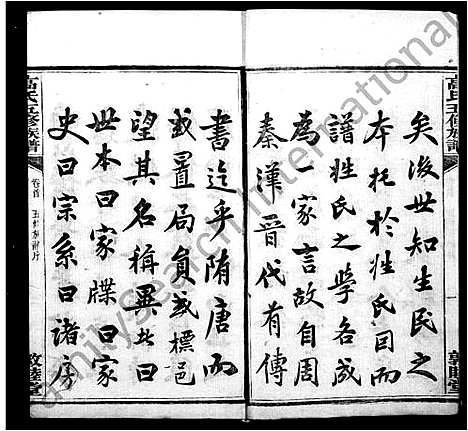 高氏五修族譜
敦睦堂
矣後世知生民之
本托於姓氏因而
譜牲氏之學各成
為一家言故自周
秦漢晉代有傳
書迄乎隋唐而
或置局員或標邑
望其名稱異北曰
世本曰家牒曰家
史曰宗系曰諸房
高氏五修族譜
卷首
敦睦堂
FamilySearch International